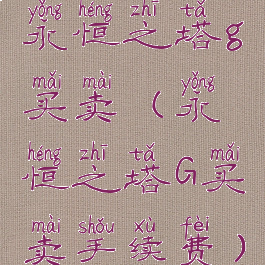 yǒng héng zhī tǎ
永恒之塔g
mǎi mài yǒng
买卖（永
héng zhī tǎ mǎi
恒之塔G买
mài shǒu xù fèi
卖手续费）